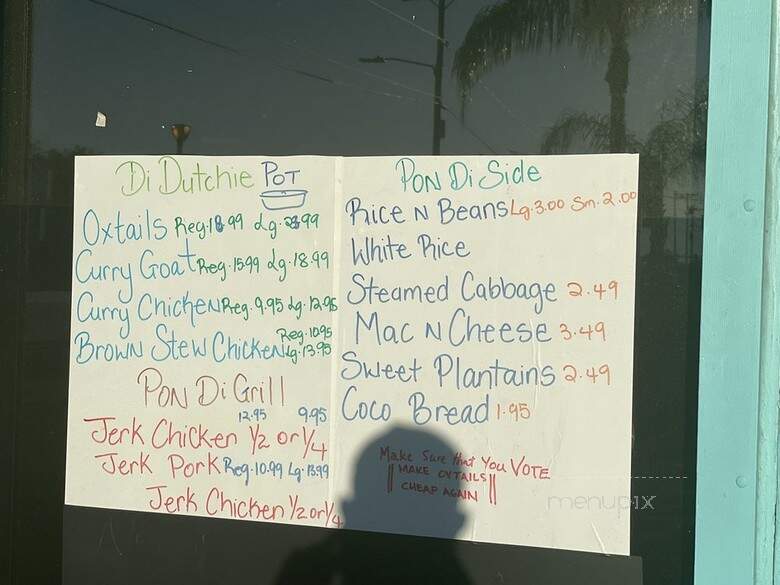 Di Dutchie POT
Oxtails Reg. 18.99 Lg. 99
Curry Goat Reg. 15.99 Lg. 18.99
Curry Chicken Reg. 9.95 Lg. 12.95
Reg. 10.95
Brown Stew Chicken Lg. 13.95
PON Di Grill
12.95 9.95
Jerk Chicken 1/2 or 1/4
Jerk Pork Reg. 10.99 Lg. 13.99
Jerk Chicken 1/2 or 1/4
PON Di Side
Rice N Beans Lg. 3.00 Sm. 2.00
White Rice
Steamed Cabbage 2.49
Mac N Cheese 3.49
Sweet Plantains 2.49
Coco Bread 1.95
Make Sure that You VOTE
MAKE OXTAILS
CHEAP AGAIN
menupix